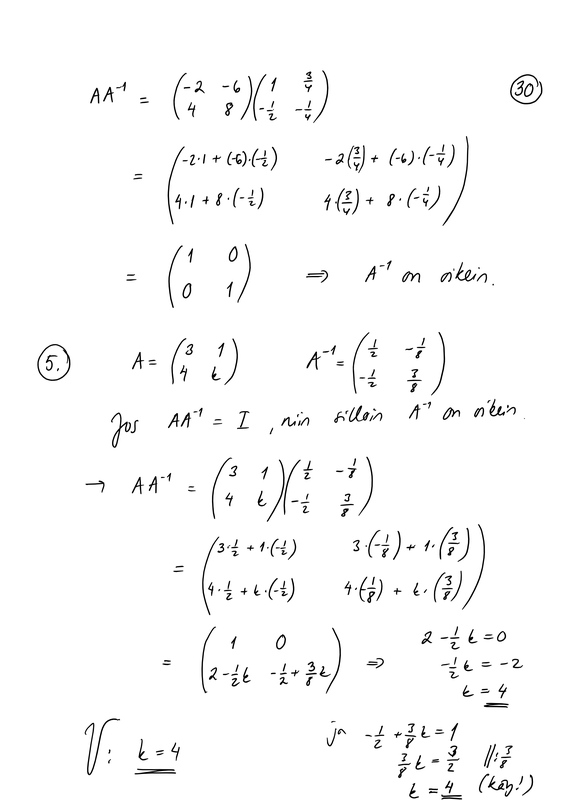 AA⁻¹ = (-2 -6; 4 8)(1 3/4; -1/2 -1/4) 30
= (-2·1 + (-6)·(-1/2) -2(3/4) + (-6)·(-1/4); 4·1 + 8·(-1/2) 4·(3/4) + 8·(-1/4))
= (1 0; 0 1) ⇒ A⁻¹ on oikein.
5. A = (3 1; 4 t) A⁻¹ = (1/2 -1/8; -1/2 3/8)
Jos AA⁻¹ = I, niin silloin A⁻¹ on oikein.
→ AA⁻¹ = (3 1; 4 t)(1/2 -1/8; -1/2 3/8)
= (3·1/2 + 1·(-1/2) 3·(-1/8) + 1·(3/8); 4·1/2 + t·(-1/2) 4·(-1/8) + t·(3/8))
= (1 0; 2-1/2t -1/2+3/8t) ⇒ 2 - 1/2t = 0
-1/2t = -2
t = 4
ja -1/2 + 3/8t = 1
3/8t = 3/2 ||:3/8
t = 4 (käy!)
V: t = 4